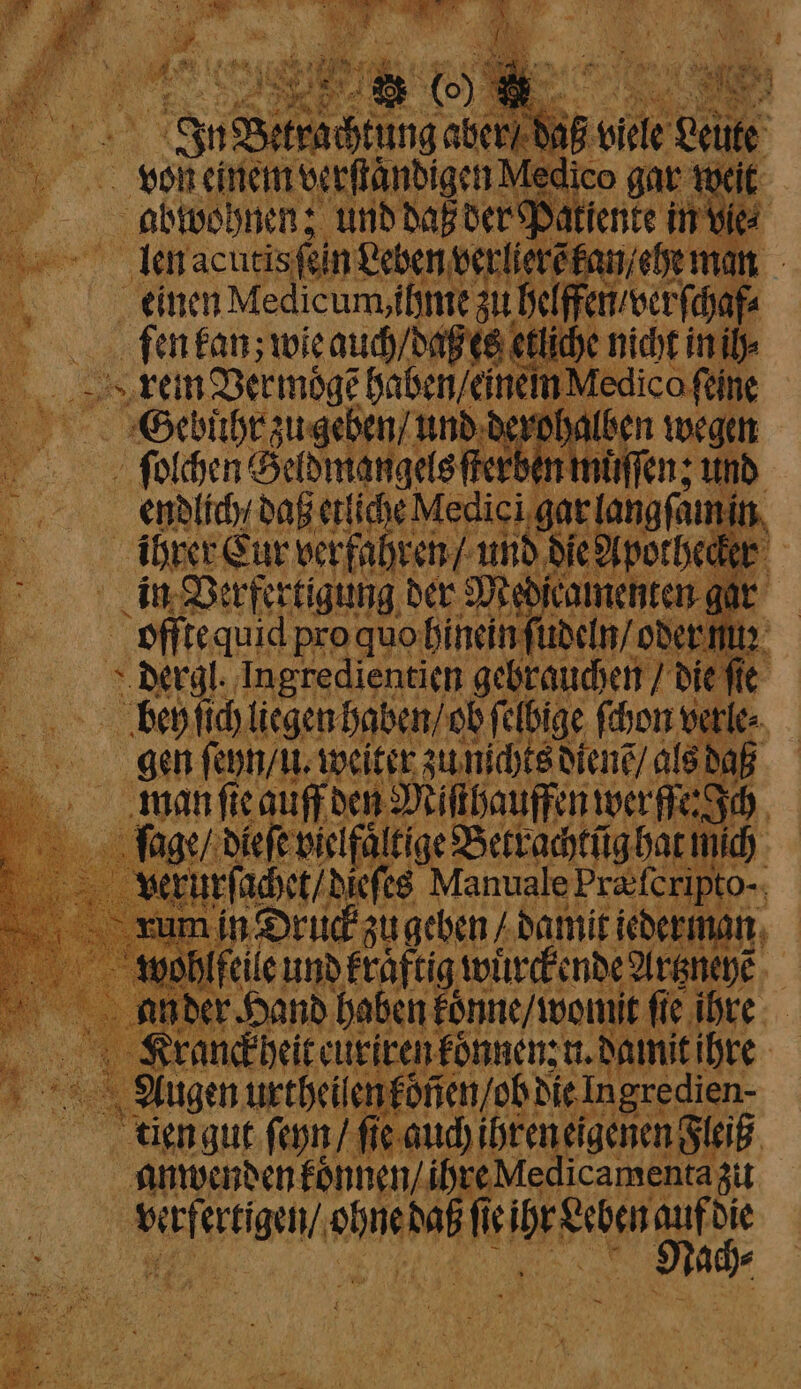 ❁ (o) ❁
In Betrachtung aber/ daß viele Leute
von einem verſtaͤndigen Medico gar weit
abwohnen; und daß der Patiente in vie⸗
len acutis ſein Leben verlierẽ kan/ehe man
einen Medicum, ihme zu helffen/verſchaf⸗
fen kan; wie auch/daß es etliche nicht in ih⸗
rem Vermoͤgẽ haben/einem Medico ſeine
Gebuͤhr zu geben/ und derohalben wegen
ſolchen Geldmangels ſterben muͤſſen; und
endlich/ daß etliche Medici gar langſam in
ihrer Cur verfahren/ und die Apothecker
in Verfertigung der Medicamenten gar
offte quid pro quo hinein ſudeln/ oder nuꝛ
dergl. Ingredientien gebrauchen / die ſie
bey ſich liegen haben/ ob ſelbige ſchon verle⸗
gen ſeyn/u. weiter zu nichts dienẽ/ als daß
man ſie auff den Miſthauffen werffe: Ich
ſage/ dieſe vielfaͤltige Betrachtũg hat mich
verurſachet/ dieſes Manuale Præſcripto-
rum in Druck zu geben / damit iederman
wohlfeile und kraͤftig wuͤrckende Artzneyẽ
an der Hand haben koͤnne/womit ſie ihre
Kranckheit curiren koͤnnen; u. damit ihre
Augen urtheilen koͤñen/ob die Ingredien-
tien gut ſeyn / ſie auch ihren eigenen Fleiß
anwenden koͤnnen/ ihre Medicamenta zu
verfertigen/ ohne daß ſie ihr Leben auf die
Nach⸗